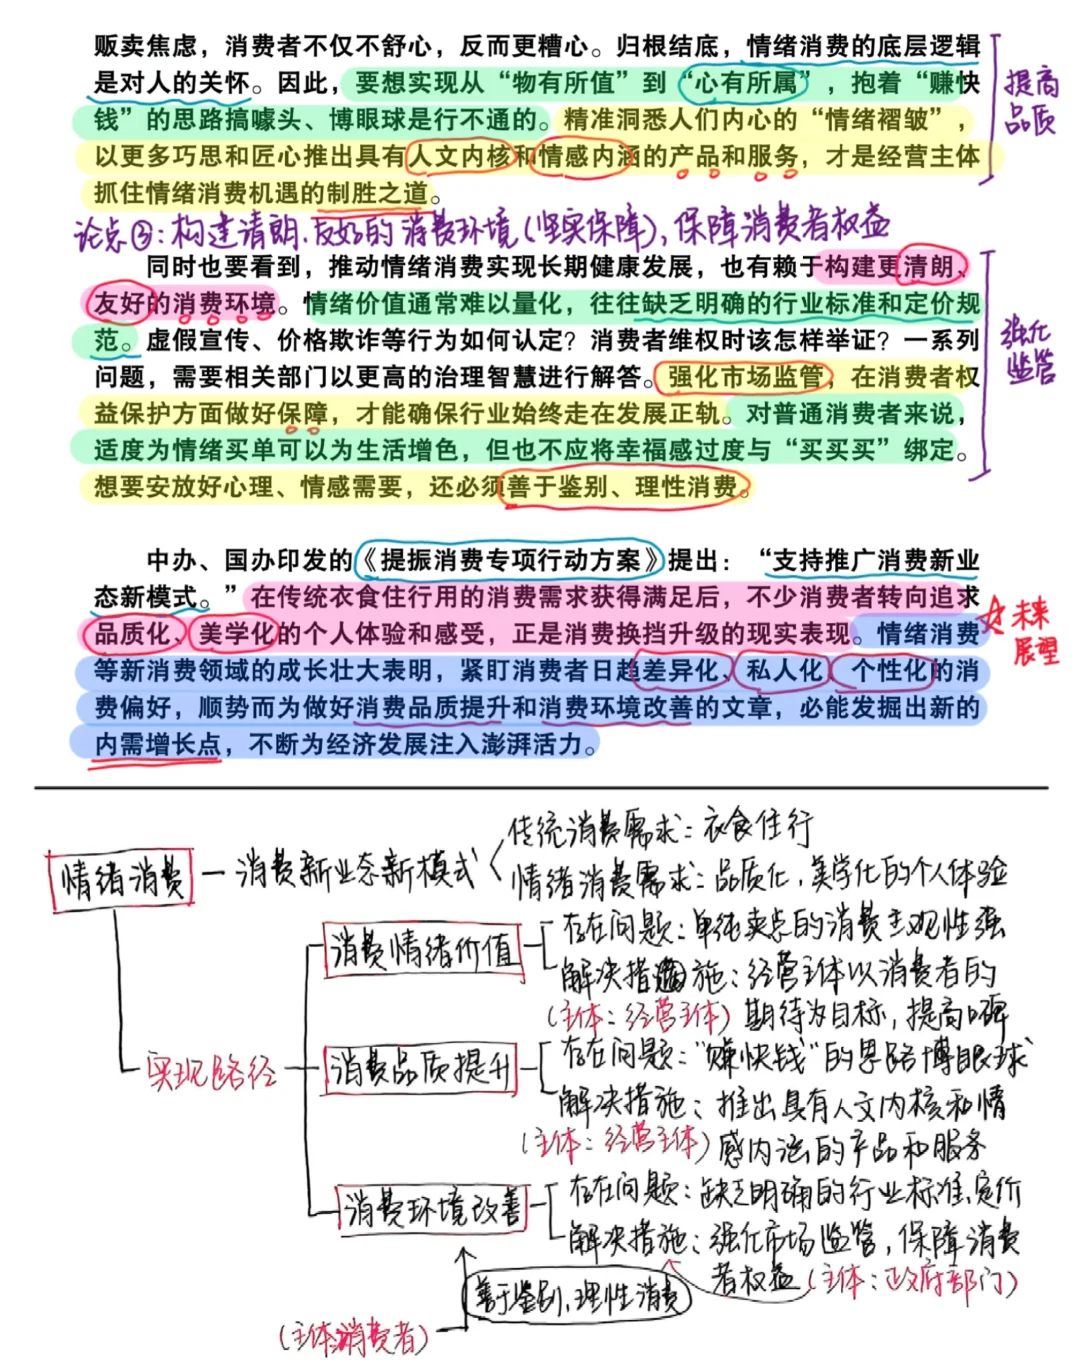 贩卖焦虑，消费者不仅不舒心，反而更糟心。归根结底，情绪消费的底层逻辑
是对人的关怀。因此，要想实现从“物有所值”到“心有所属”，抱着“赚快
钱”的思路搞噱头、博眼球是行不通的。精准洞悉人们内心的“情绪褶皱”，
以更多巧思和匠心推出具有人文内核和情感内涵的产品和服务，才是经营主体
抓住情绪消费机遇的制胜之道。
提高
品质
论点③：构建清朗、友好的消费环境（坚实保障），保障消费者权益
同时也要看到，推动情绪消费实现长期健康发展，也有赖于构建更清朗、
友好的消费环境。情绪价值通常难以量化，往往缺乏明确的行业标准和定价规
范。虚假宣传、价格欺诈等行为如何认定？消费者维权时该怎样举证？一系列
问题，需要相关部门以更高的治理智慧进行解答。强化市场监管，在消费者权
益保护方面做好保障，才能确保行业始终走在发展正轨。对普通消费者来说，
适度为情绪买单可以为生活增色，但也不应将幸福感过度与“买买买”绑定。
想要安放好心理、情感需要，还必须善于鉴别、理性消费。
强化
监管
中办、国办印发的《提振消费专项行动方案》提出：“支持推广消费新业
态新模式。”在传统衣食住行用的消费需求获得满足后，不少消费者转向追求
品质化、美学化的个人体验和感受，正是消费换挡升级的现实表现。情绪消费
等新消费领域的成长壮大表明，紧盯消费者日趋差异化、私人化、个性化的消
费偏好，顺势而为做好消费品质提升和消费环境改善的文章，必能发掘出新的
内需增长点，不断为经济发展注入澎湃活力。
未来
展望
情绪消费
消费新业态新模式
传统消费需求：衣食住行
情绪消费需求：品质化，美学化的个人体验
实现路径
消费情绪价值
存在问题：单纯卖点的消费主观性强
解决措施：经营主体以消费者的
（主体：经营主体）期待为目标，提高口碑
消费品质提升
存在问题：“赚快钱”的思路博眼球
解决措施：推出具有人文内核和情
（主体：经营主体）感内涵的产品和服务
消费环境改善
存在问题：缺乏明确的行业标准、定价
解决措施：强化市场监管，保障消费
者权益（主体：政府部门）
善于鉴别，理性消费
（主体：消费者）